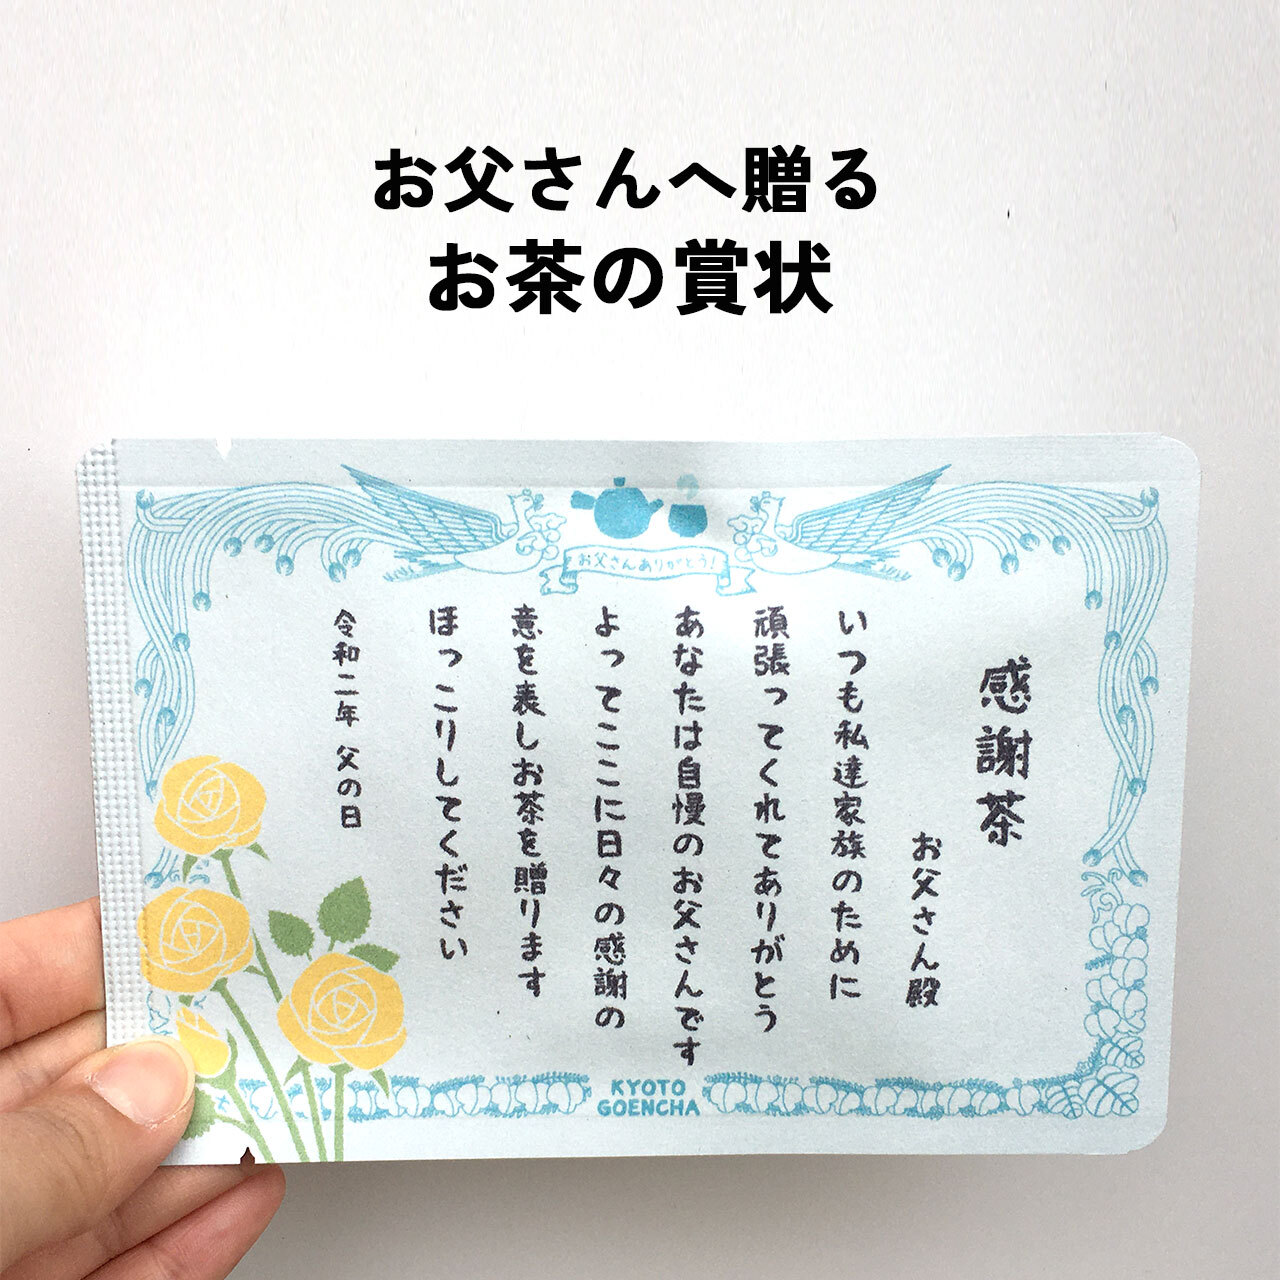 お父さんへ贈る
お茶の賞状
お父さんありがとう!
感謝茶
お父さん殿
いつも私達家族のために
頑張ってくれてありがとう
あなたは自慢のお父さんです
よってここに日々の感謝の
意を表しお茶を贈ります
ほっこりしてください
令和二年 父の日
KYOTO
GOENCHA